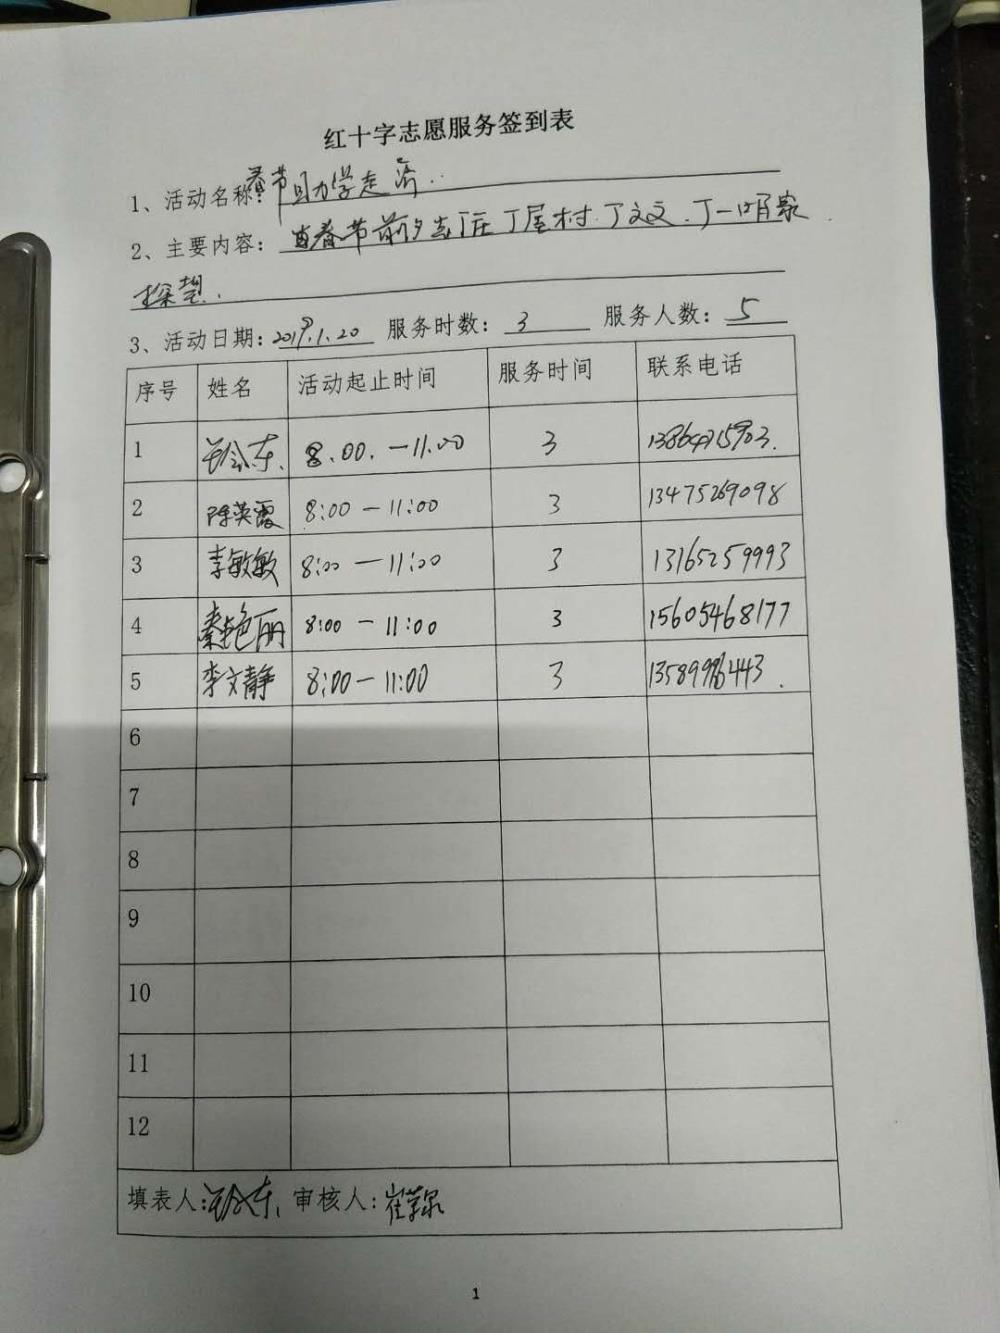 红十字志愿服务签到表
1、活动名称:春节助学走访
2、主要内容: 春节前夕去 丁屋村 丁文文、丁一明家
探望.
3、活动日期:2019.1.20 服务时数: 3 服务人数: 5
序号 姓名 活动起止时间 服务时间 联系电话
1 8.00.—11.00 3
2 陈英霞 8:00—11:00 3 13475269098
3 李敏敏 8:00—11:00 3 13165259993
4 秦艳丽 8:00—11:00 3 15605468177
5 李文静 8:00—11:00 3
6
7
8
9
10
11
12
填表人: 审核人:
1